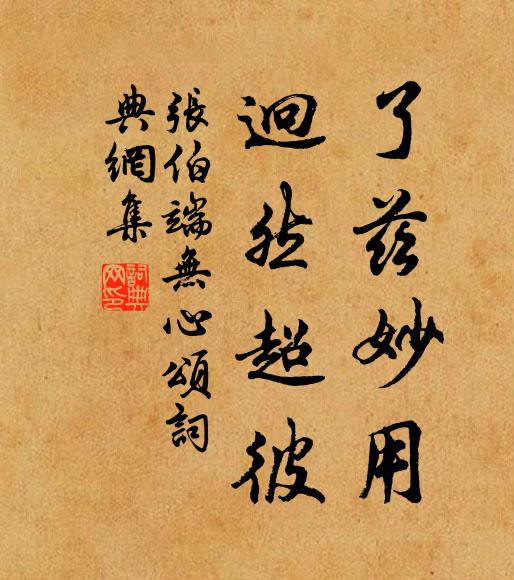 了茲妙用
迥然超彼
張伯端無心頌詞
典網集
詞典
网印